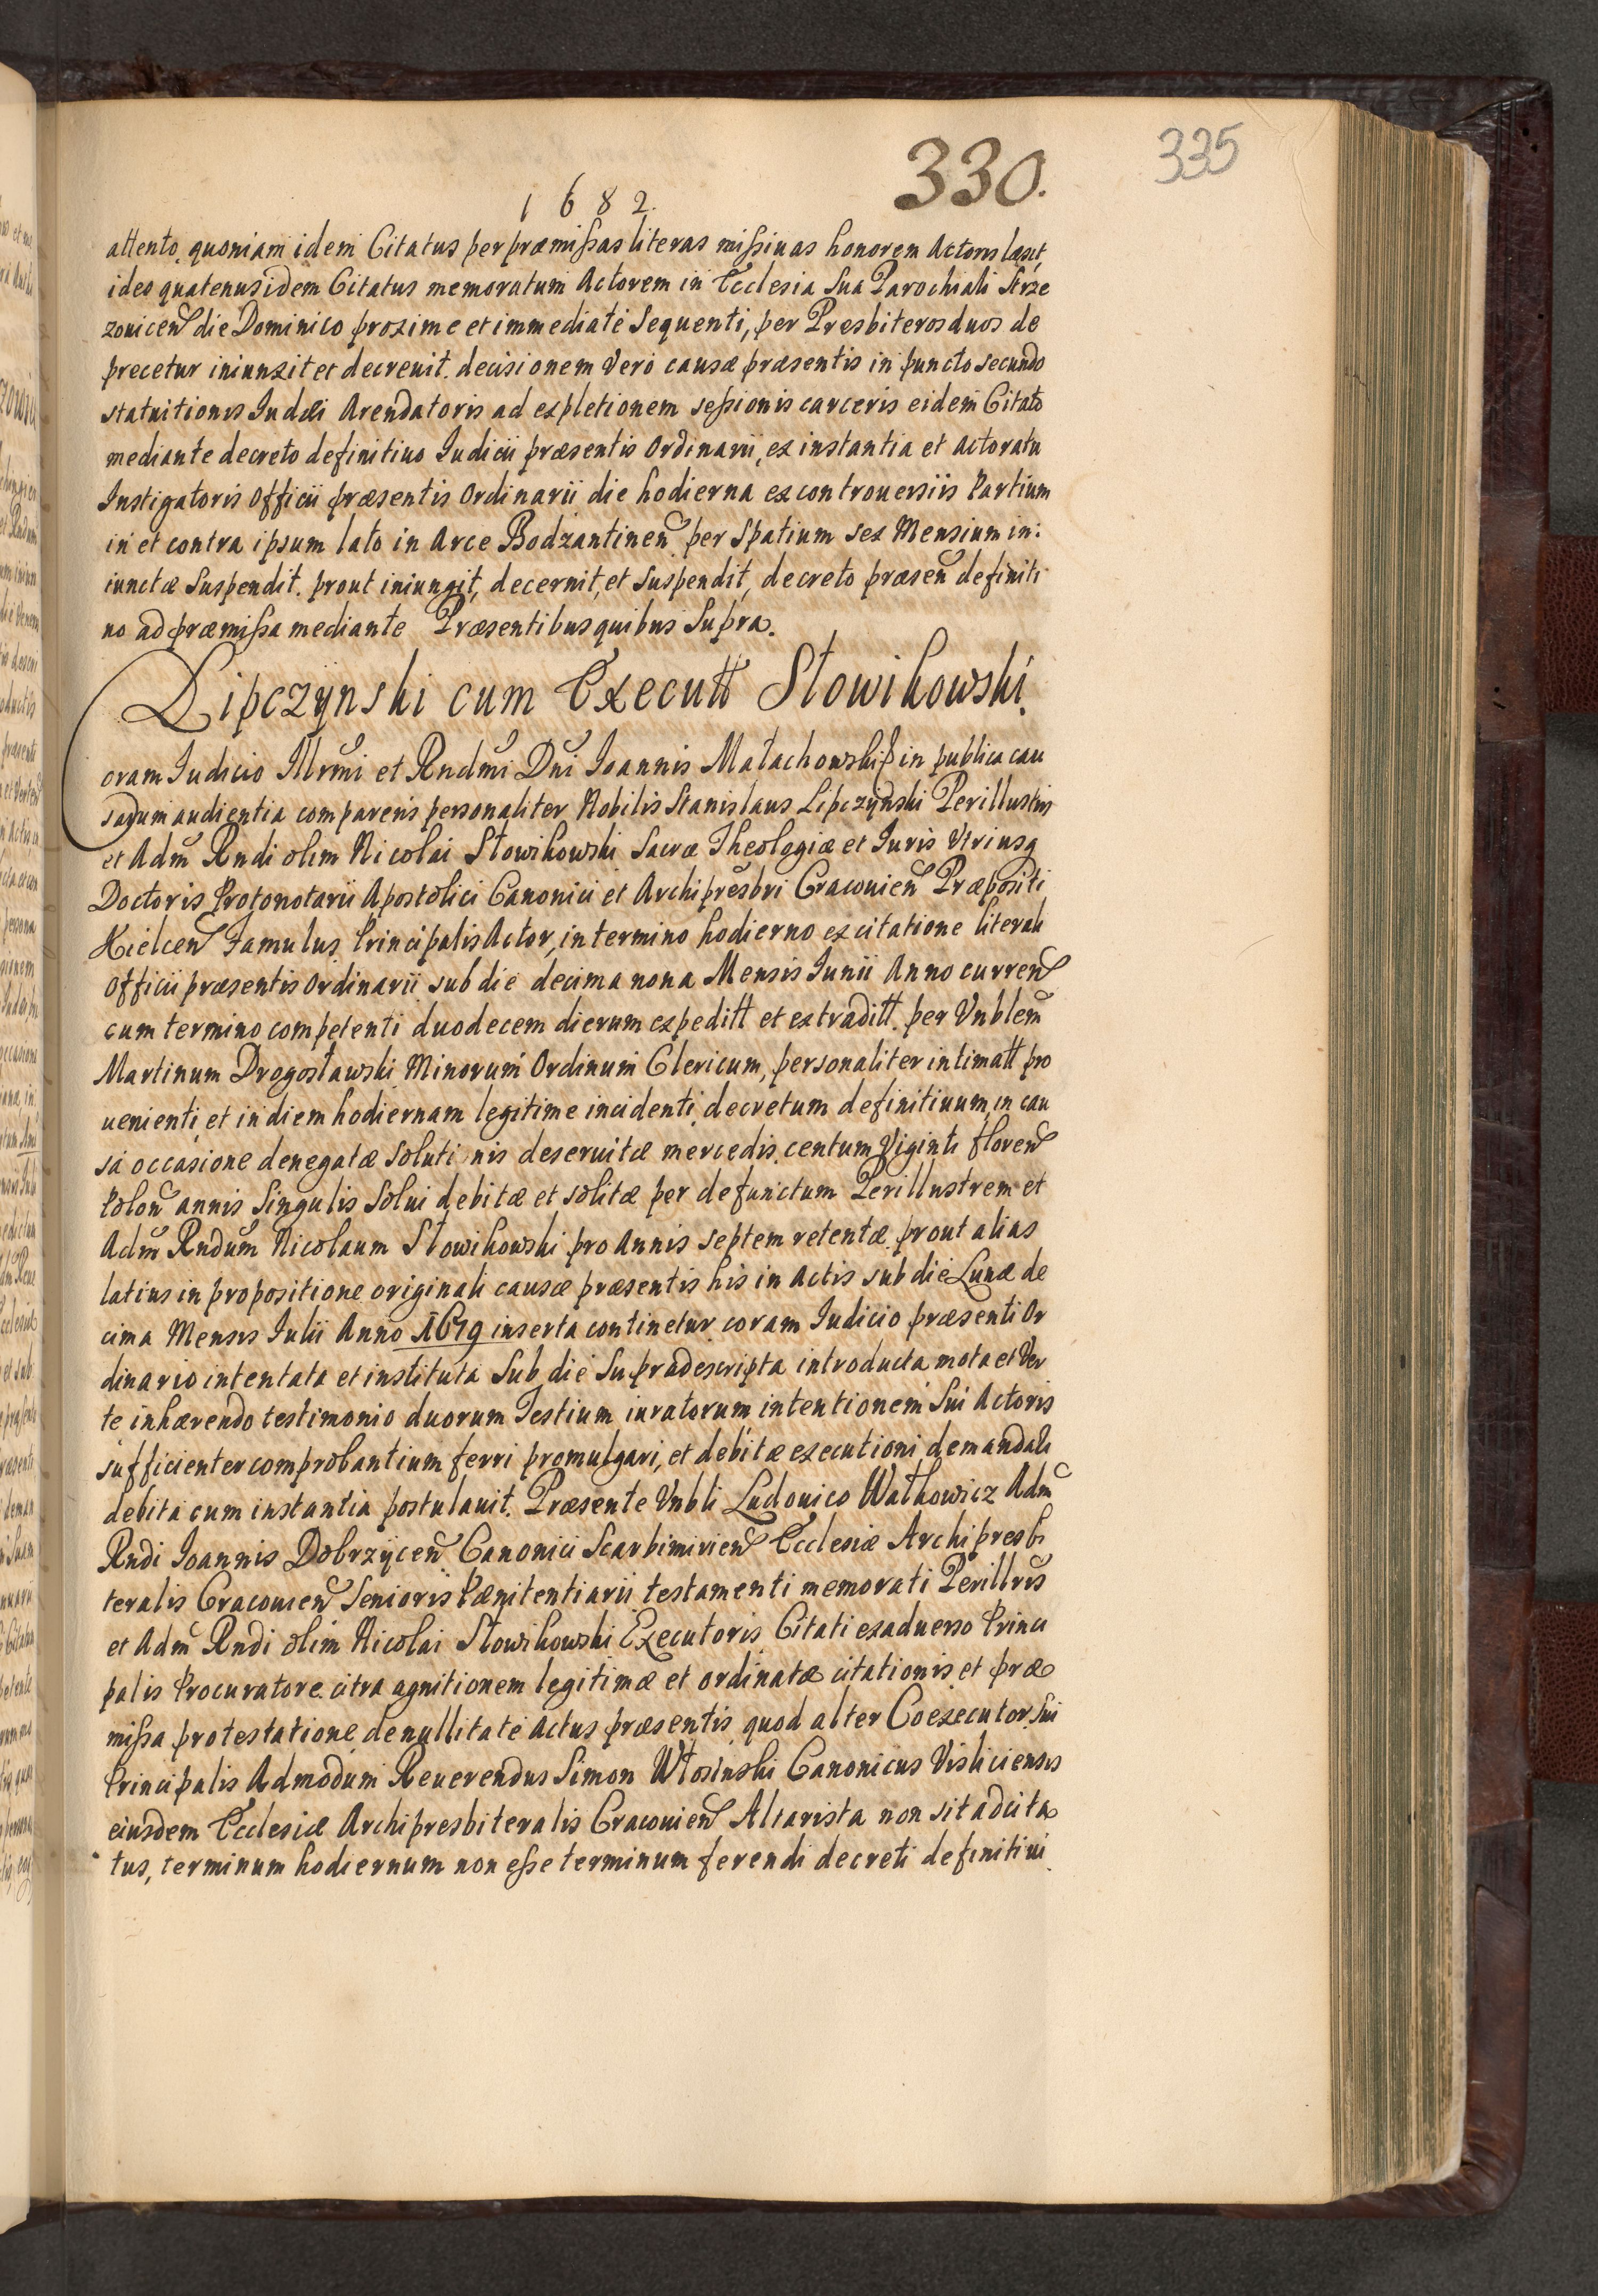 335
330.
1682.
attento, quoniam idem Citatus per præmißas literas mißiuas honorem Actoris læsit,
ideo quatenus idem Citatus memoratum Actorem in Ecclesia Sua Parochiali Strze
zouicen die Dominico proxime et immediaté Sequenti, per Presbiteros duos de
precetur iniunxit et decreuit. decisionem Veró causæ præsentis in puncto secundo
statuitionis Iudæi Arendatoris ad expletionem seßionis carceris eidem Citato
mediante decreto definitiuo Iudicii præsentis Ordinarii, ex instantia et Actoratu
Instigatoris Officii præsentis Ordinarii die hodierna ex controuersiis Partium
in et contra ipsum lato in Arce Bodzantinen per Spatium sex Mensium in:
iunctæ Suspendit. prout iniungit, decernit, et Suspendit, decreto præsen definiti
uo ad præmißa mediante Præsentibus quibus Supra.
Lipczynski cum Executt Słowikowski.
Coram Iudicio Illrmi et Rndmi Dni Ioannis Małachowski in publica cau
sarum audientia comparens personaliter Nobilis Stanislaus Lipczynski Perillustris
et Adm Rndi olim Nicolai Słowikowski Sacræ Theologiæ et Iuris Vtriusq
Doctoris Protonotarii Apostolici Canonici et Archipresbri Cracouien Præpositi
Kielcen Famulus Principalis Actor, in termino hodierno ex citatione literali
Officii præsentis Ordinarii sub die decima nona Mensis Iunii Anno curren
cum termino competenti duodecem dierum expeditt et extraditt per Vnblem
Martinum Drogosławski Minorum Ordinum Clericum, personaliter intimatt pro
uenienti, et in diem hodiernam legitime incidenti decretum definitiuum in cau
sa occasione denegatæ Soluti nis deseruitæ mercedis centum Viginti floren
Polon annis Singulis Solui debitæ et solitæ per defunctum Perillustrem et
Adm Rndum Nicolaum Słowikowski pro Annis septem retentæ prout alias
latius in propositione originali causæ præsentis his in Actis sub die Lunæ de
cima Mensis Iulii Anno 1679 inserta continetur coram Iudicio præsenti Or
dinario intentata et instituta Sub die Supradescripta introducta mota et Ver
te inhærendo testimonio duorum Testium iuratorum intentionem Sui Actoris
sufficienter comprobantium ferri promulgari, et debitæ executioni demandari
debita cum instantia postulauit. Præsente Vnbli Ludouico Wałkowicz Adm
Rndi Ioannis Dobrzycen Canonici Scarbimirien Ecclesiæ Archipresbi
teralis Cracouien Senioris Pænitentiarii testamenti memorati Perillris
et Adm Rndi olim Nicolai Słowikowski Executoris Citati ex aduerso Princi
palis Procuratore citra agnitionem legitimæ et ordinatæ citationis et præ
mißa protestatione de nullitate Actus præsentis quod alter Coexecutor Sui
Principalis Admodum Reuerendus Simon Włosinski Canonicus Visliciensis
eiusdem Ecclesiæ Archipresbiteralis Cracouien Altarista non sit adcita
tus, terminum hodiernum non eße terminum ferendi decreti definitiui